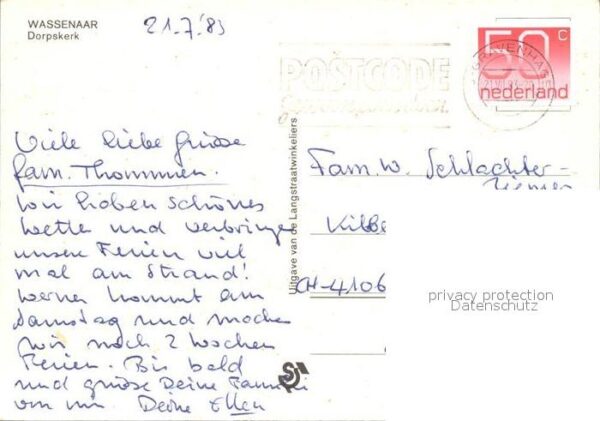 WASSENAAR
Dorpskerk
21.7.'83
50 c
nederland
'S-GRAVENHAGE
POSTCODE
Uitgave van de Langstraatwinkeliers
Viele liebe Grüsse
fam. Thommen.
Wir haben schönes
Wetter und verbringen
unsre Ferien viel
mal am Strand!
Werner kommt am
Samstag und machen
wir noch 2 Wochen
Ferien. Bis bald
und grüsse Deine Familie
von mir. Deine Ellen
Fam. W. Schlachter-
CH-4106
privacy protection
Datenschutz